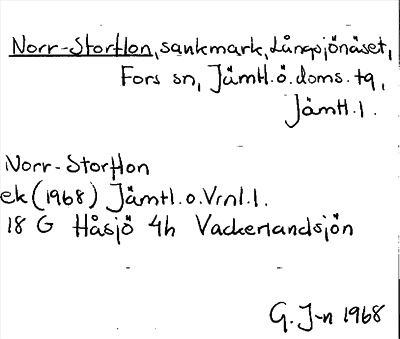 Norr-Storflon, sankmark, Långsjönäset,
Fors sn, Jämtl.ö.doms.tg,
Jämtl.l.
Norr-Storflon
ek (1968) Jämtl.o.Vrnl.l.
18 G Håsjö 4h Vackerlandsjön
G. J-n 1968